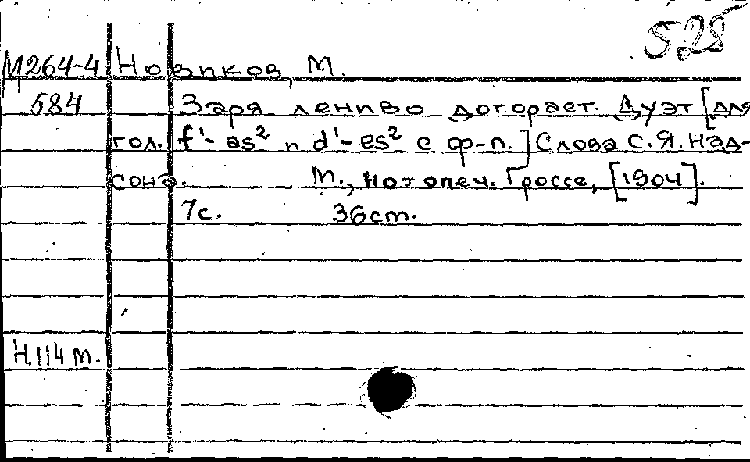 525
М264-4 Новиков, М.
584 Заря лениво догорает. Дуэт [для
гол. f'-as² и d'-es² с ф-п.] Слова С.Я. Над-
сона. М., Нотопеч. Гроссе, [1904].
7с. 36cm.
Н.114 м.